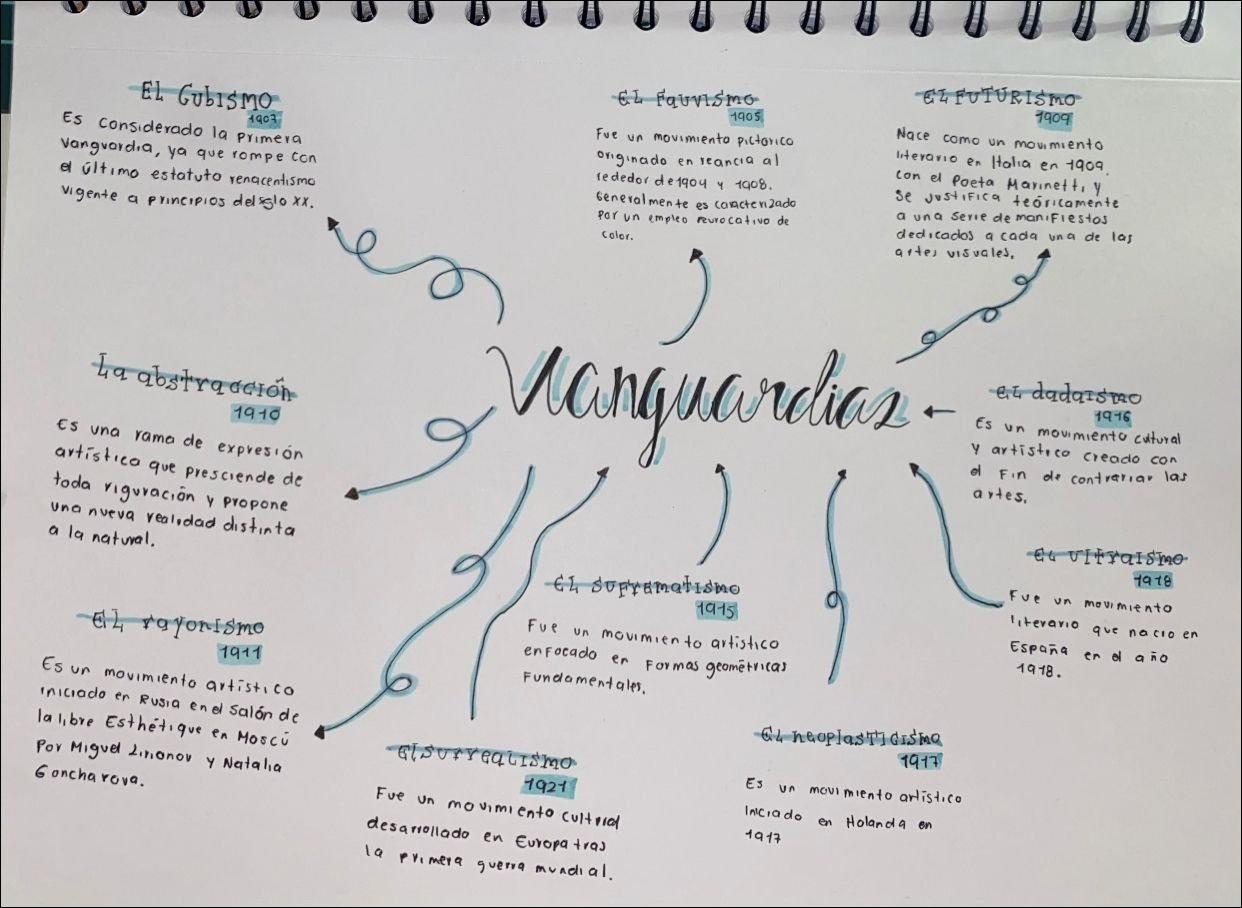 EL Cubismo
1907
Es considerado la primera
vanguardia, ya que rompe con
el último estatuto renacentismo
vigente a principios del siglo XX.
EL Fauvismo
1905
Fue un movimiento pictorico
originado en reancia al
rededor de 1904 y 1908.
Generalmente es caracterizado
por un empleo provocativo de
color.
EL FUTURISmo
1909
Nace como un movimiento
literario en Italia en 1909.
con el Poeta Marinetti, y
se justifica teóricamente
a una serie de manifiestos
dedicados a cada una de las
artes visuales.
Vanguardias
La abstracción
1910
Es una rama de expresión
artística que presciende de
toda riguración y propone
una nueva realidad distinta
a la natural.
EL dadaismo
1916
Es un movimiento cultural
y artístico creado con
el Fin de contrariar las
artes.
EL Ultraismo
1918
Fue un movimiento
literario que nacio en
España en el año
1918.
EL Suprematismo
1915
Fue un movimiento artistico
enfocado en Formas geométricas
Fundamentales.
EL rayonismo
1911
Es un movimiento artístico
iniciado en Rusia en el salón de
la libre Esthétique en Moscú
por Miguel Lirionov y Natalia
Goncharova.
El surrealismo
1921
Fue un movimiento cultural
desarrollado en Europa tras
la primera guerra mundial.
EL neoplasticismo
1917
Es un movimiento artístico
iniciado en Holanda en
1917